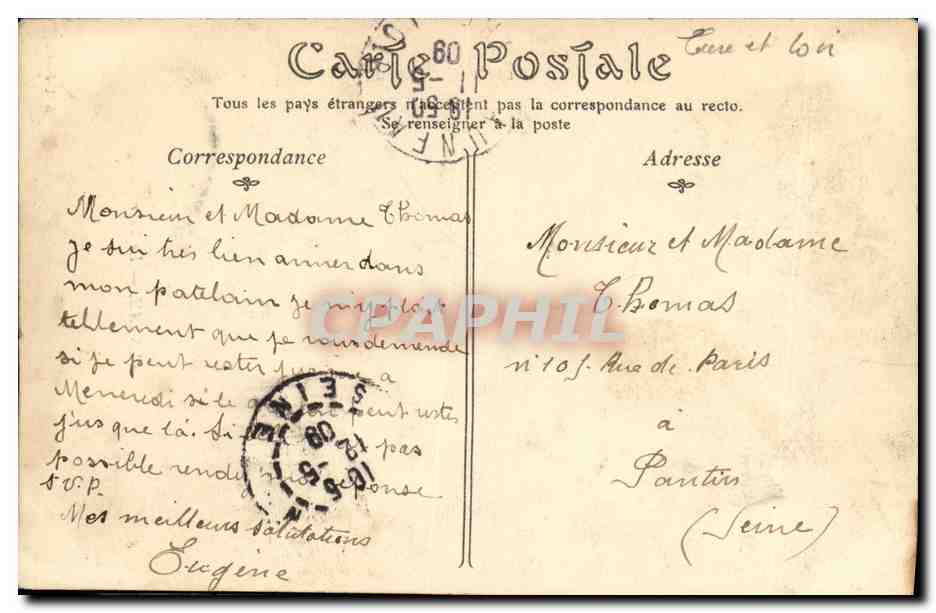 Carte Postale
Eure et Loir
Tous les pays étrangers n'acceptent pas la correspondance au recto.
Se renseigner à la poste
Correspondance
Monsieur et Madame Thomas
je sui très bien arriver dans
mon patelain je m'y plait
tellement que je vous demende
si je peut rester jusque a
Mercredi si le peut rester
j'us que là. Si pas
possible rendez moi réponse
S.V.P.
Mes meilleurs salutations
Eugène
Adresse
Monsieur et Madame
Thomas
n°105 Rue de Paris
à
Pantin
(Seine)
CPAPHIL
SEINE
5 09
16 50